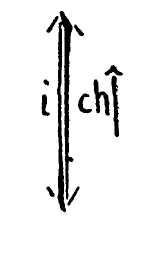 i ch